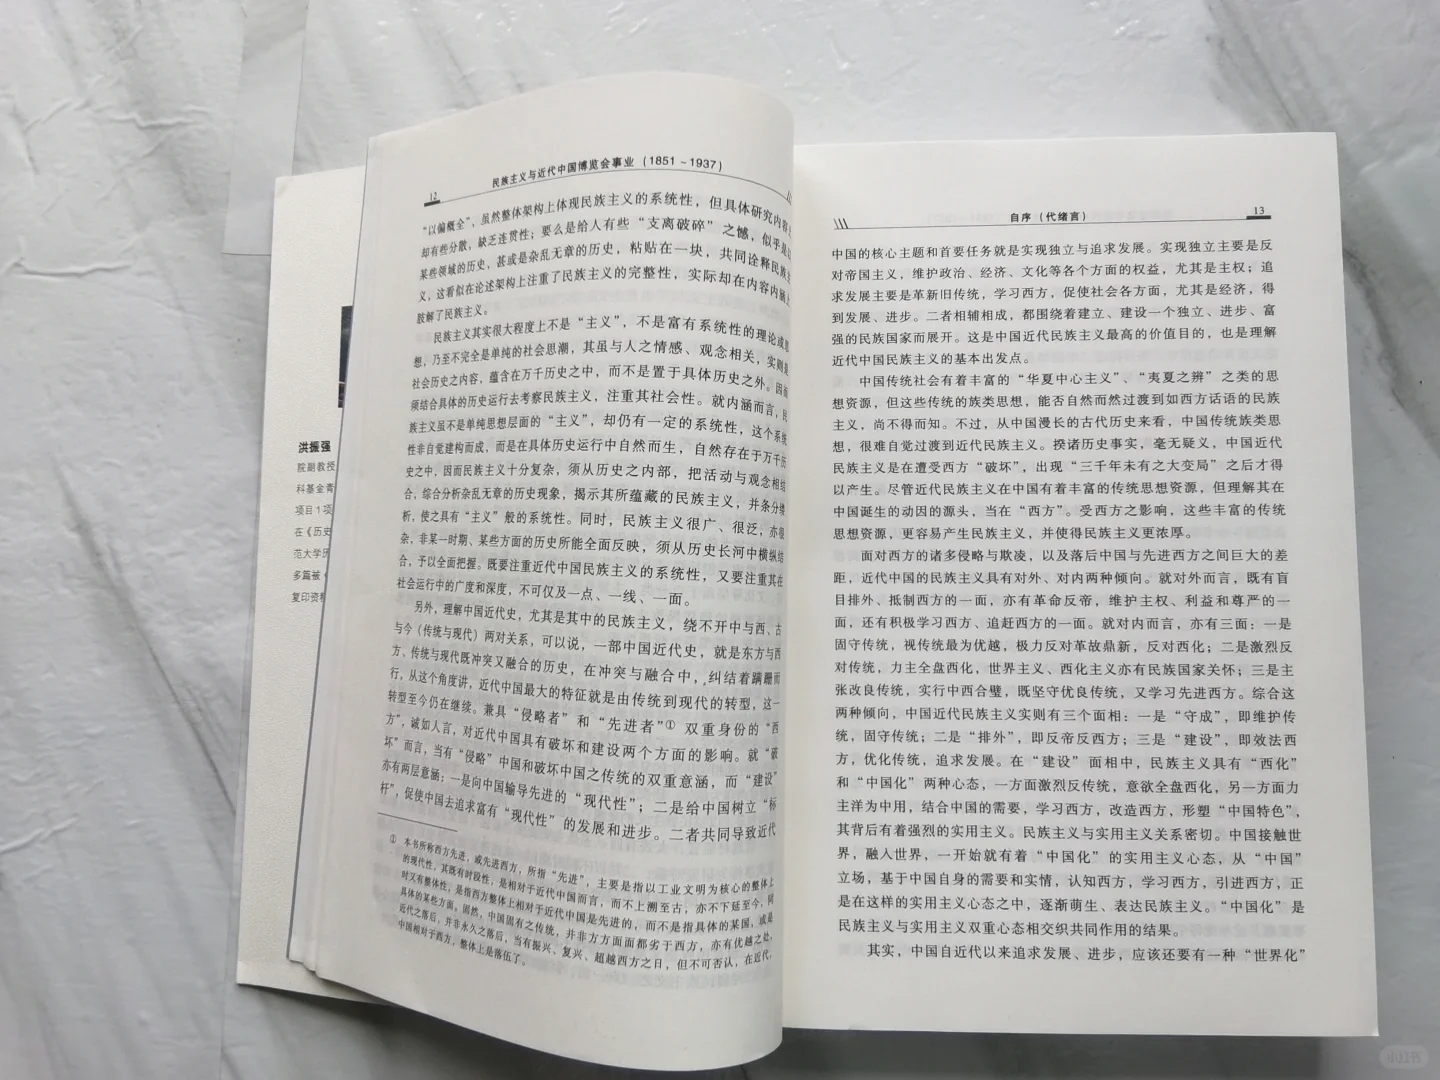 洪振强
院副教授
科基金青
项目1项
在《历史
范大学历
多篇被《
复印资料
民族主义与近代中国博览会事业（1851～1937）
12
“以偏概全”，虽然整体架构上体现民族主义的系统性，但具体研究内容
却有些分散，缺乏连贯性；要么是给人有些“支离破碎”之憾，似乎是以
某些领域的历史，甚或是杂乱无章的历史，粘贴在一块，共同诠释民族主
义，这看似在论述架构上注重了民族主义的完整性，实际却在内容内涵上
肢解了民族主义。
民族主义其实很大程度上不是“主义”，不是富有系统性的理论或思
想，乃至不完全是单纯的社会思潮，其虽与人之情感、观念相关，实则是
社会历史之内容，蕴含在万千历史之中，而不是置于具体历史之外。因而
须结合具体的历史运行去考察民族主义，注重其社会性。就内涵而言，民
族主义虽不是单纯思想层面的“主义”，却仍有一定的系统性，这个系统
性非自觉建构而成，而是在具体历史运行中自然而生，自然存在于万千历
史之中，因而民族主义十分复杂，须从历史之内部，把活动与观念相结
合，综合分析杂乱无章的历史现象，揭示其所蕴藏的民族主义，并条分缕
析，使之具有“主义”般的系统性。同时，民族主义很广、很泛，亦很
杂，非某一时期、某些方面的历史所能全面反映，须从历史长河中横纵结
合，予以全面把握。既要注重近代中国民族主义的系统性，又要注重其在
社会运行中的广度和深度，不可仅及一点、一线、一面。
另外，理解中国近代史，尤其是其中的民族主义，绕不开中与西、古
与今（传统与现代）两对关系，可以说，一部中国近代史，就是东方与西
方、传统与现代既冲突又融合的历史，在冲突与融合中，纠结着蹒跚而
行，从这个角度讲，近代中国最大的特征就是由传统到现代的转型，这一
转型至今仍在继续。兼具“侵略者”和“先进者”① 双重身份的“西
方”，诚如人言，对近代中国具有破坏和建设两个方面的影响。就“破
坏”而言，当有“侵略”中国和破坏中国之传统的双重意涵，而“建设”
亦有两层意涵：一是向中国输导先进的“现代性”；二是给中国树立“标
杆”，促使中国去追求富有“现代性”的发展和进步。二者共同导致近代
① 本书所称西方先进，或先进西方，所指“先进”，主要是指以工业文明为核心的整体上
的现代性，其既有时段性，是相对于近代中国而言，而不上溯至古，亦不下延至今，同
时又有整体性，是指西方整体上相对于近代中国是先进的，而不是指具体的某国，或是
具体的某些方面；固然，中国固有之传统，并非方方面面都劣于西方，亦有优越之处，
近代之落后，并非永久之落后，当有振兴、复兴、超越西方之日，但不可否认，在近代，
中国相对于西方，整体上是落伍了。
自序（代绪言）
13
中国的核心主题和首要任务就是实现独立与追求发展。实现独立主要是反
对帝国主义，维护政治、经济、文化等各个方面的权益，尤其是主权；追
求发展主要是革新旧传统，学习西方，促使社会各方面，尤其是经济，得
到发展、进步。二者相辅相成，都围绕着建立、建设一个独立、进步、富
强的民族国家而展开。这是中国近代民族主义最高的价值目的，也是理解
近代中国民族主义的基本出发点。
中国传统社会有着丰富的“华夏中心主义”、“夷夏之辨”之类的思
想资源，但这些传统的族类思想，能否自然而然过渡到如西方话语的民族
主义，尚不得而知。不过，从中国漫长的古代历史来看，中国传统族类思
想，很难自觉过渡到近代民族主义。揆诸历史事实，毫无疑义，中国近代
民族主义是在遭受西方“破坏”，出现“三千年未有之大变局”之后才得
以产生。尽管近代民族主义在中国有着丰富的传统思想资源，但理解其在
中国诞生的动因的源头，当在“西方”。受西方之影响，这些丰富的传统
思想资源，更容易产生民族主义，并使得民族主义更浓厚。
面对西方的诸多侵略与欺凌，以及落后中国与先进西方之间巨大的差
距，近代中国的民族主义具有对外、对内两种倾向。就对外而言，既有盲
目排外、抵制西方的一面，亦有革命反帝，维护主权、利益和尊严的一
面，还有积极学习西方、追赶西方的一面。就对内而言，亦有三面：一是
固守传统，视传统最为优越，极力反对革故鼎新，反对西化；二是激烈反
对传统，力主全盘西化，世界主义、西化主义亦有民族国家关怀；三是主
张改良传统，实行中西合璧，既坚守优良传统，又学习先进西方。综合这
两种倾向，中国近代民族主义实则有三个面相：一是“守成”，即维护传
统，固守传统；二是“排外”，即反帝反西方；三是“建设”，即效法西
方，优化传统，追求发展。在“建设”面相中，民族主义具有“西化”
和“中国化”两种心态，一方面激烈反传统，意欲全盘西化，另一方面力
主洋为中用，结合中国的需要，学习西方，改造西方，形塑“中国特色”，
其背后有着强烈的实用主义。民族主义与实用主义关系密切。中国接触世
界，融入世界，一开始就有着“中国化”的实用主义心态，从“中国”
立场，基于中国自身的需要和实情，认知西方，学习西方，引进西方，正
是在这样的实用主义心态之中，逐渐萌生、表达民族主义。“中国化”是
民族主义与实用主义双重心态相交织共同作用的结果。
其实，中国自近代以来追求发展、进步，应该还要有一种“世界化”
小红书